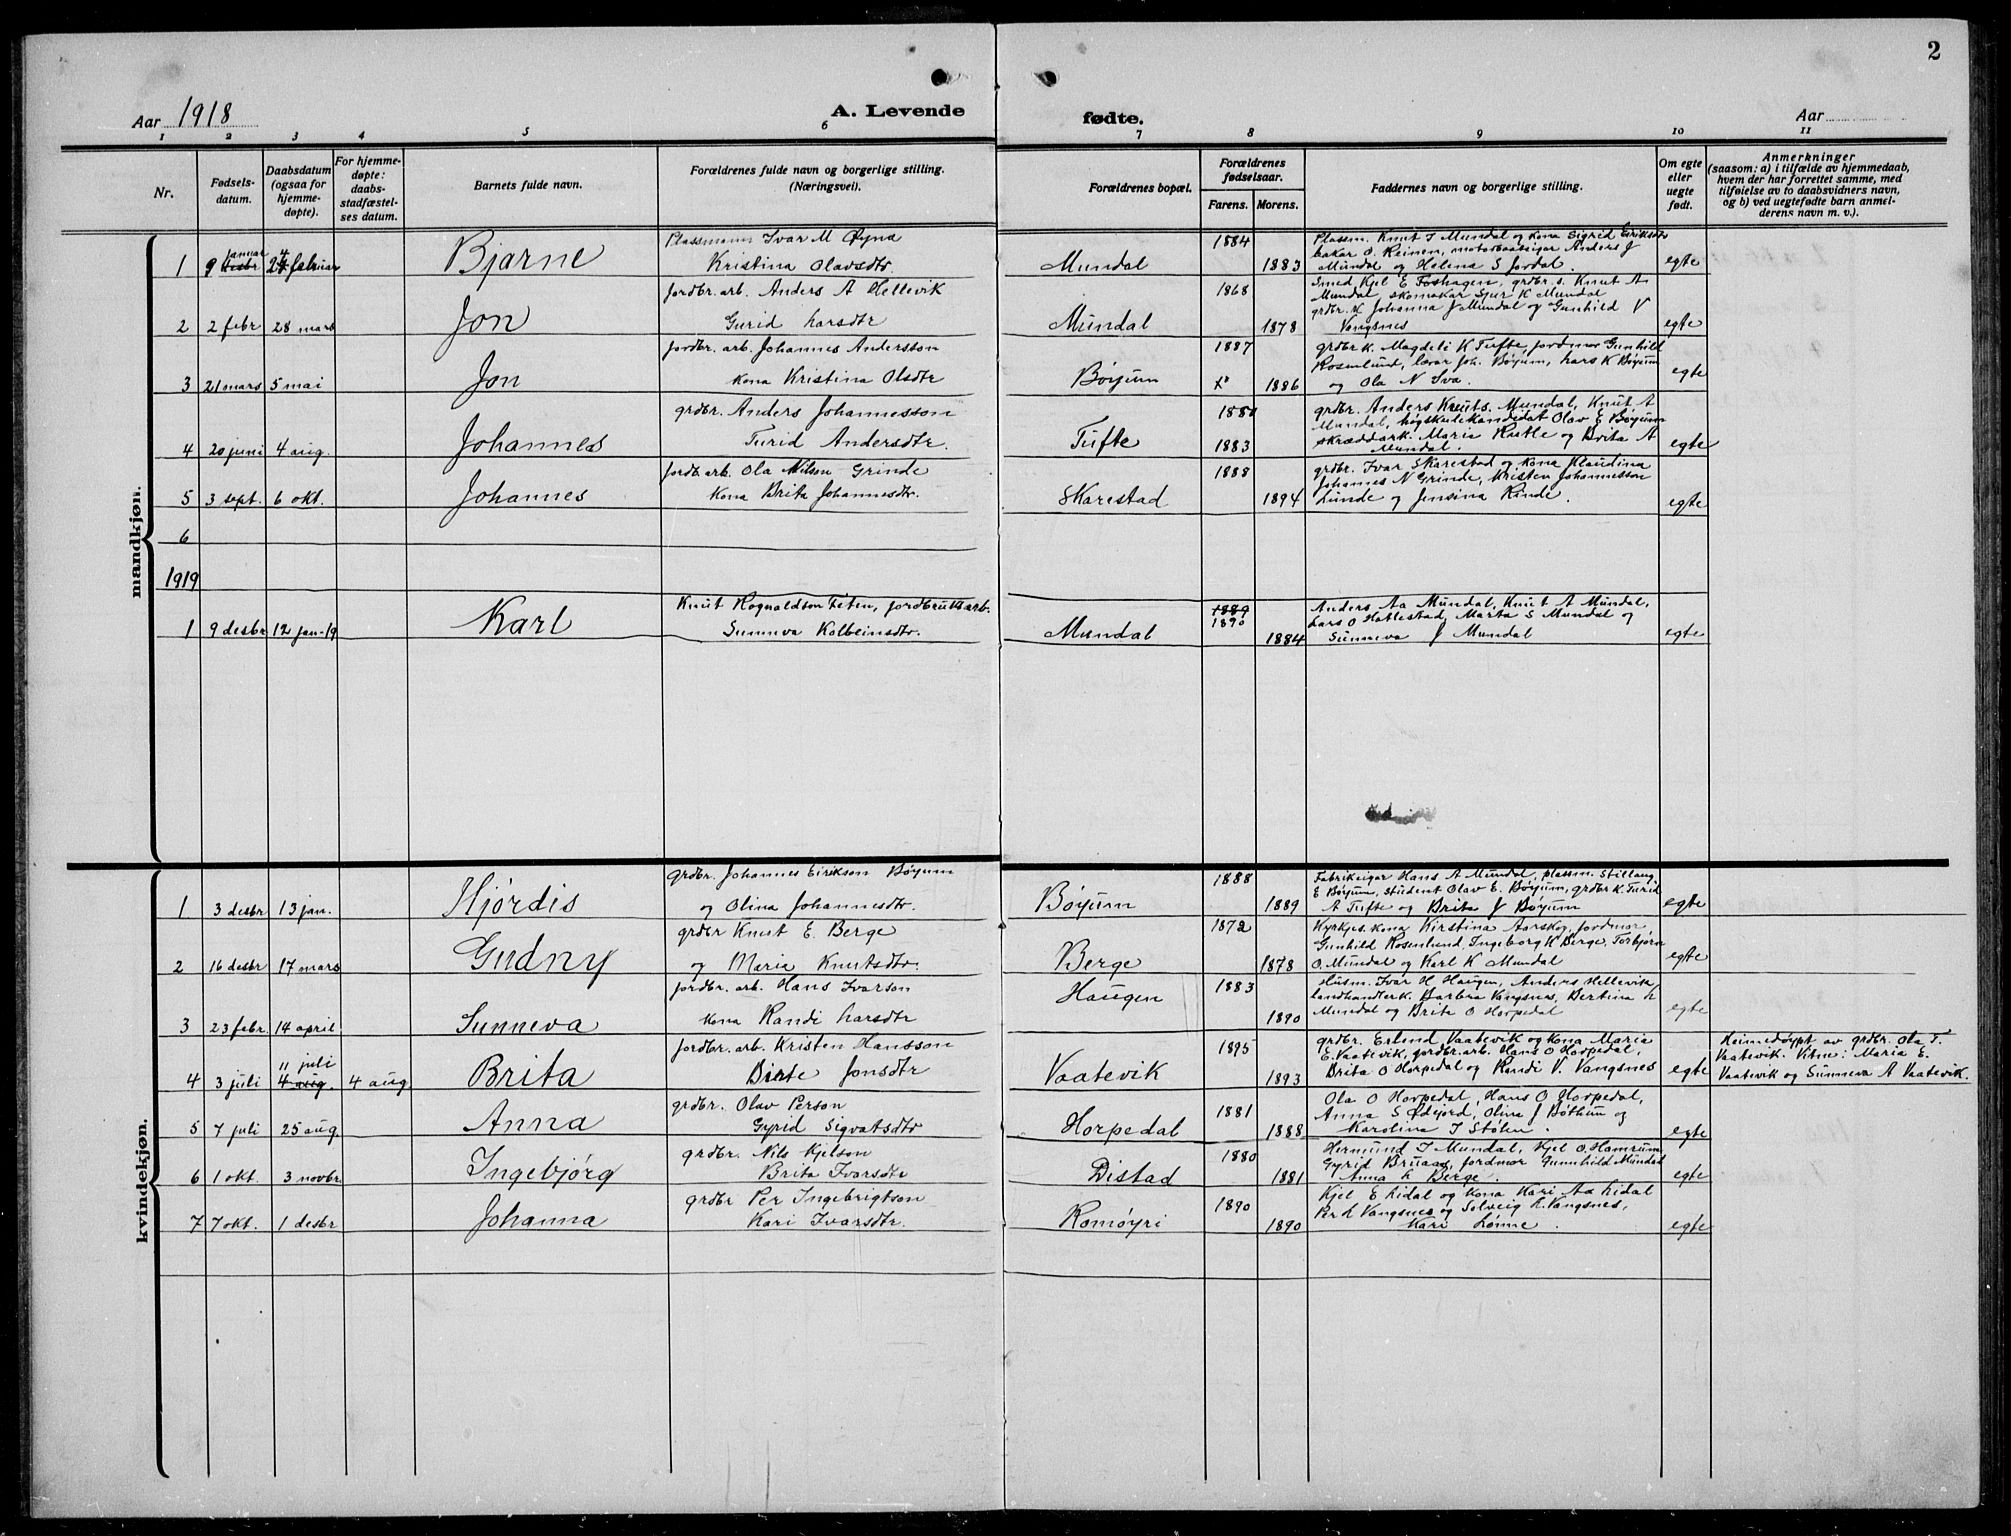 2
Aar 1918
A. Levende
fødte.
Aar
1 2 3 4 5 6 7 8 9 10 11
Nr.
Fødsels-
datum.
Daabsdatum
(ogsaa for
hjemme-
døpte).
For hjemme-
døpte:
daabs-
stadfæstel-
ses datum.
Barnets fulde navn.
Forældrenes fulde navn og borgerlige stilling.
(Næringsvei).
Forældrenes bopæl.
Forældrenes
fødselsaar.
Farens. Morens.
Faddernes navn og borgerlige stilling.
Om egte
eller
uegte
født.
Anmerkninger
(saasom: a) i tilfælde av hjemmedaab,
hvem der har forrettet samme, med
tilføielse av to daabsvidners navn,
og b) ved uegtefødte barn anmel-
derens navn m. v.).
mandkjøn.
1 9 januar desbr 24 februar Bjarne
Plassmann Ivar M Øyna
Kristina Olavsdtr.
Mundal 1884 1883
Plassm. Knut I Mundal og kona Sigrid Eiriksdtr
bakar O. Reinen, motorbaatsigar Anders J
Mundal og Helena S Jordal.
egte
2 2 febr 28 mars Jon
Jordbr. arb. Anders A Hellevik
Gurid Larsdtr
Mundal 1868 1878
Smed Kjel E Foshagen, grdbr. s. Knut A
Mundal, skomakar Sjur K Mundal
grdbr. k Johanna J Mundal og Gunhild V
Vangsnes
egte
3 21 mars 5 mai Jon
Jordbr. arb. Johannes Anderston
Kona Kristina Olsdtr
Bøyum 1887 1886
grdbr k. Magdeli K Tufte, jordmor Gunhild
Rosenlund, lærar Joh. Bøyum, Lars K Bøyum
og Ola N Sva.
egte
4 20 juni 4 aug. Johannes
grdbr. Anders Johannesson
Turid Andersdtr.
Tufte 1881 1883
grdbr. Anders Knuts. Mundal, Knut A
Mundal, høgskulekandidat Olav E Bøyum
skræddark. Maria Kutle og Brita A
Mundal.
egte
5 3 sept. 6 okt. Johannes
Jordb. arb. Ola Nilson Grinde
Kona Brita Johannesdtr.
Skarestad 1888 1894
grdbr. Ivar Skarestad og kona Klaudina
Johannes N Grinde, Kristen Johannesson
Lunde og Jensina Rinde.
egte
6
1919
1 9 desbr 12 jan-19 Karl
Knut Rognaldson Feten, jordbruksarb.
Sunneva Kolbeinsdtr.
Mundal 1889 1890 1884
Anders Aa Mundal, Knut A Mundal,
Lars O Hatlestad, Marta S Mundal og
Sunneva J Mundal
egte
kvindekjøn.
1 3 desbr 13 jan. Hjørdis
grdbr. Johannes Eirikson Bøyum
og Olina Johannesdtr.
Bøyum 1888 1889
Fabrikeigar Hans A Mundal, plassm. Stillaug
E Bøyum, student Olav E. Bøyum, grdbr k. Turid
A Tufte og Brita J Bøyum
egte
2 16 desbr 17 mars Gudny
grdbr Knut E. Berge
og Maria Knutsdtr.
Berge 1872 1878
Kyrkjes. kona Kirstina Aarskog, jordmor
Gunhild Rosenlund, Ingeborg K Berge, Torbjørn
O. Mundal og Karl K Mundal
egte
3 23 febr. 14 april Sunneva
jordbr. arb. Hans Ivarson
Kona Randi Larsdtr
Haugen 1883 1890
Husm. Ivar H Haugen, Anders Hellevik,
landhandlerk. Barbra Vangsnes, Bertina L
Mundal og Brita O Horpedal
egte
4 3 juli 11 juli 4 aug. 4 aug Brita
jordbr. arb. Kristen Hansson
Birte Jonsdtr
Vaatevik 1895 1893
grdbr. Erlend Vaatevik og kona Maria
E. Vaatevik, jordbr. arb. Hans O Horpedal,
Brita O Horpedal og Randi V. Vangsnes
egte
Heimedøypt av grdbr. Ola T.
Vaatevik. Vitne: Maria E.
Vaatevik og Sunneva A Vaatevik.
5 7 juli 25 aug. Anna
grdbr. Olav Person
Gyrid Sigvatsdtr
Horpedal 1881 1888
Ola O Horpedal, Hans O Horpedal,
Anna S Ødejord, Olina J Bøthun og
Karolina I Støten.
egte
6 1 okt. 3 novbr Ingebjørg
grdbr. Nils Kjelson
Brita Ivarsdtr
Distad 1880 1881
Hermund I Mundal, Kjel O. Hamrum
Gyrid Bruaas, jordmor Gunnhild Mundal
Anna L Berge.
egte
7 7 okt. 1 desbr Johanna
grdbr Per Ingebrigtson
Kari Ivarsdtr.
Romøyri 1890 1890
Kjel E Lidal og kona Kari Aa Lidal
Per L Vangsnes og Solveig L. Vangsnes,
Kari Lønne.
egte